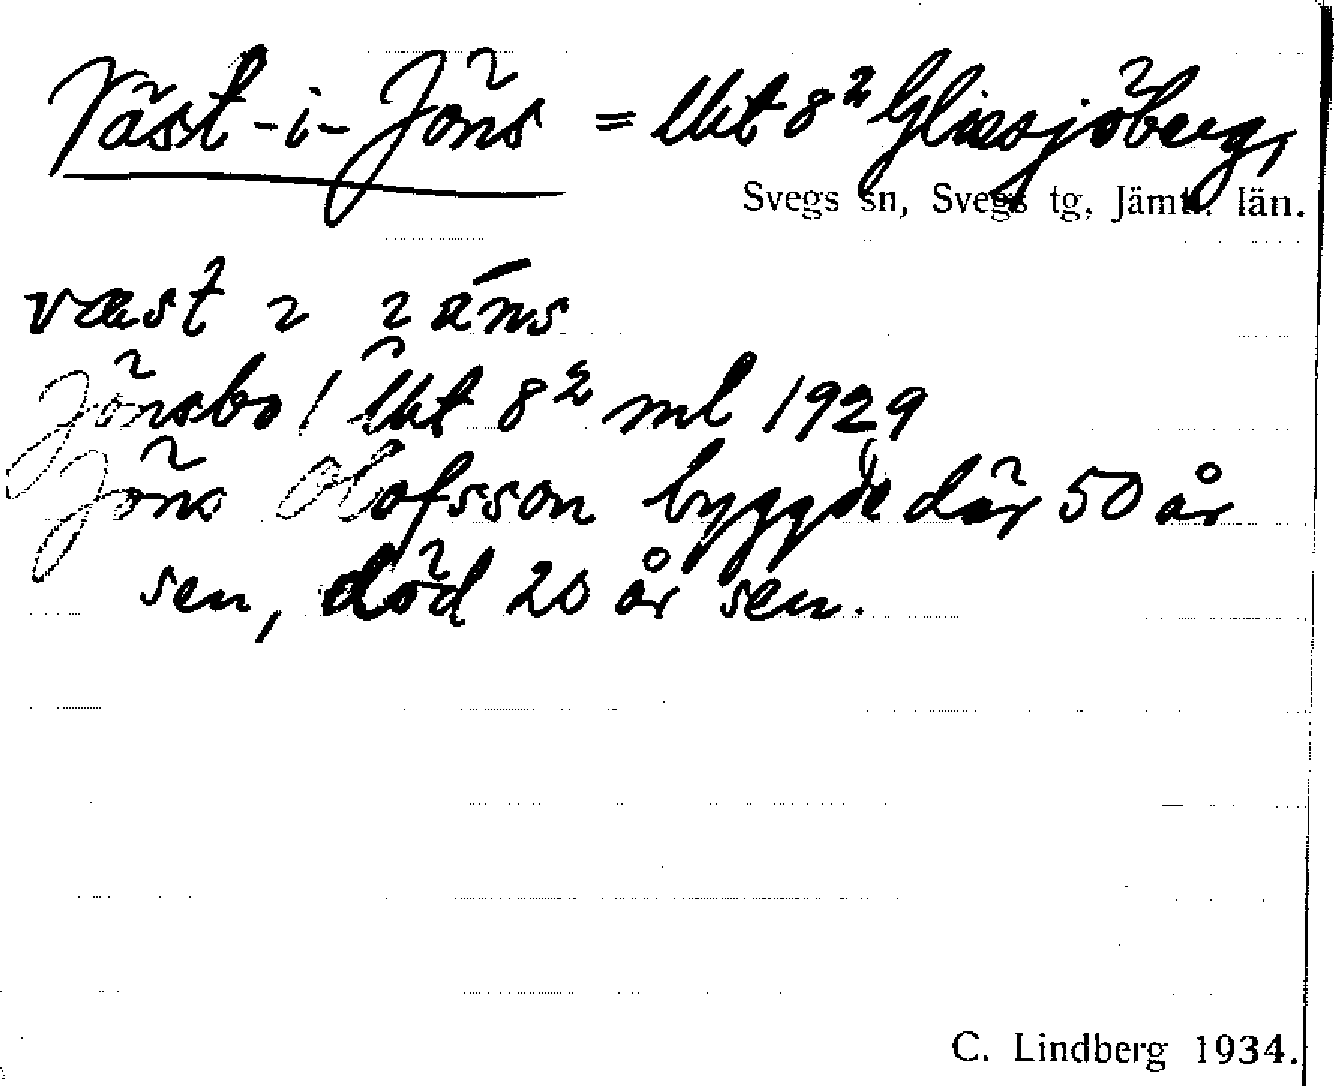 Väst-i-Jöns = lht 8² Glissjöberg,
Svegs sn, Svegs tg, Jämtl. län.
væst
Jönsbo / lht 8² ml 1929
Jöns Olofsson byggde där 50 år
sen, död 20 år sen.
C. Lindberg 1934.